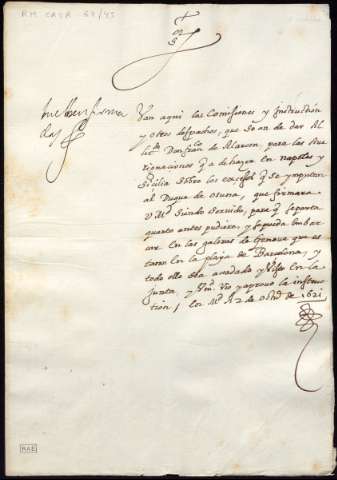 RM CAJA 57/45
Van aqui las Comisiones y Instruction
y otros despachos, que se an de dar Al
licdo Don franco de Alarcon, para las Ave
riguaciones q a de hazer en napoles y
Sicilia sobre los excesos q se ymputan
al Duque de osuna, que firmara
V Mgd siendo servido, para q se parta
quanto antes pudiere, y se pueda embar
car en las galeras de Genova que es
taran en la playa de Barcelona, y
todo ello esta acordado y visto en la
junta, y Vio y aprovo la instruc
tion, en Md A 2 de de 1621
RAE